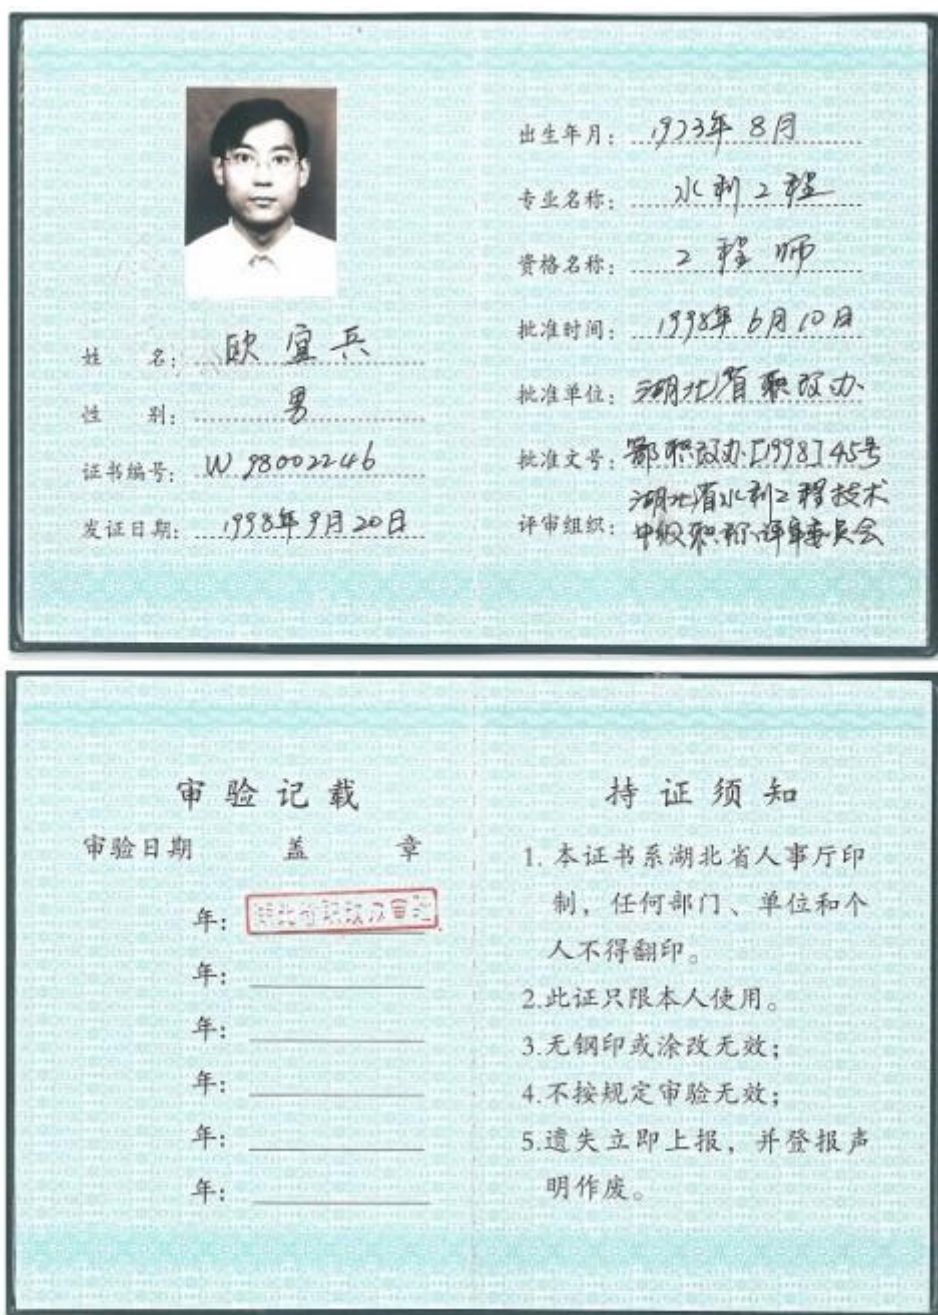 姓 名: 欧宜兵
性 别: 男
证书编号: W 98002246
发证日期: 1998年9月20日
出生年月: 1973年8月
专业名称: 水利工程
资格名称: 工程师
批准时间: 1998年6月10日
批准单位: 湖北省职改办
批准文号: 鄂职改办[1998]45号
评审组织: 湖北省水利工程技术
中级职称评审委员会
审验记载
审验日期 盖 章
年: 湖北省职改办审验
年:
年:
年:
年:
年:
持证须知
1. 本证书系湖北省人事厅印
制，任何部门、单位和个
人不得翻印。
2.此证只限本人使用。
3.无钢印或涂改无效；
4.不按规定审验无效；
5.遗失立即上报，并登报声
明作废。